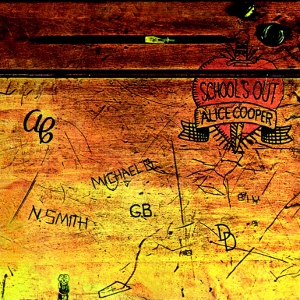 SCHOOL'S OUT
ALICE COOPER
AC
MICHAEL B
G.B.
N. SMITH
DD